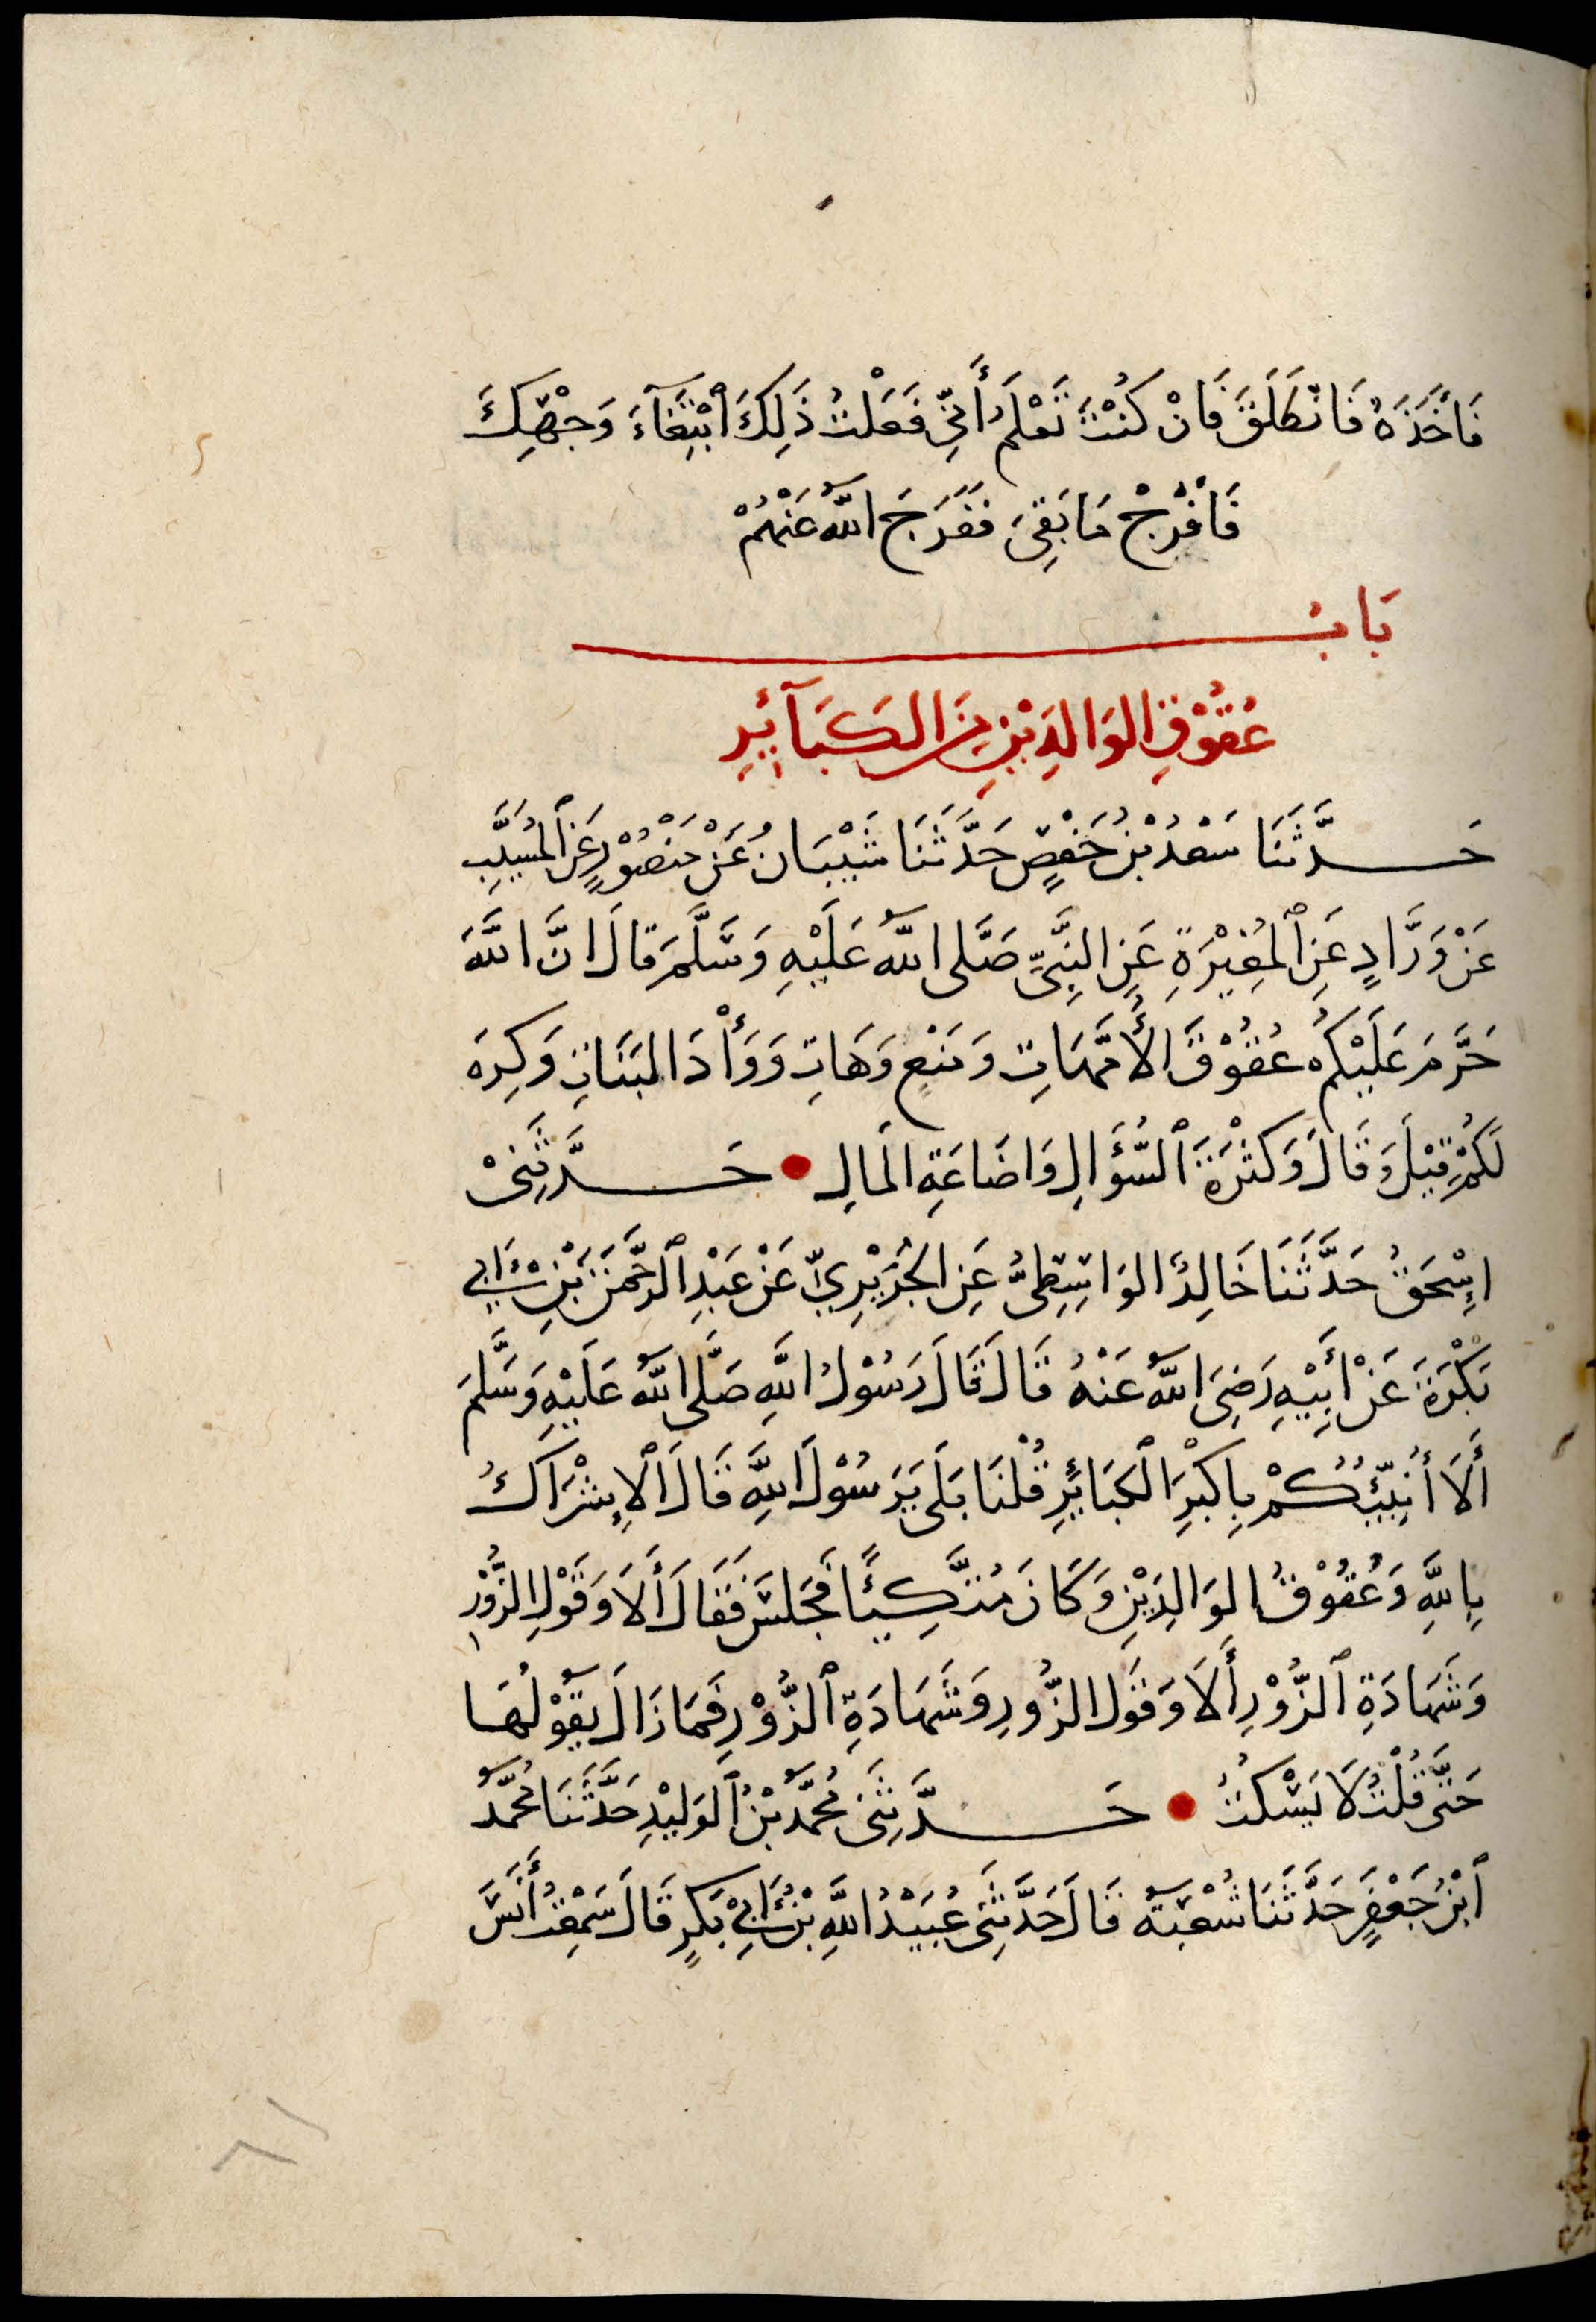 فَاَخَذَهُ فَانْطَلَقَ فَانْ كُنْتَ تَعْلَمُ أَنِّي فَعَلْتُ ذَلِكَ ٱبْتِغَآءَ وَجْهِكَ
فَافْرُجْ مَا بَقِىَ فَفَرَجَ اللّٰهُ عَنْهُمْ
بَابُ
عُقُوْقِ الوَالِدَيْنِ مِنَ الكَبَآئِرِ
حَدَّثَنَا سَعْدُ بْنُ حَفْصٍ حَدَّثَنَا شَيْبَانُ عَنْ مَنْصُوْرٍ عَنِ ٱلمُسَيَّبِ
عَنْ وَرَّادٍ عَنِ ٱلمُغِيْرَةِ عَنِ النَّبِىِّ صَلَّى اللّٰهُ عَلَيْهِ وَسَلَّمَ قَالَ اِنَّ اللّٰهَ
حَرَّمَ عَلَيْكُمْ عُقُوْقَ الأُمَّهَاتِ وَمَنْعٍ وَهَاتِ وَوَأْدَ البَنَاتِ وَكِرِهَ
لَكُمْ قِيْلَ وَقَالَ وَكَثْرَةَ ٱلسُّؤَالِ وَاِضَاعَةِ المَالِ ● حَدَّثَنِىْ
اِسْحٰقُ حَدَّثَنَا خَالِدٌ الوَاسِطِىُّ عَنِ الجُرَيْرِيِّ عَنْ عَبْدِ ٱلرَّحْمٰنِ بْنِ أَبِي
بَكْرَةَ عَنْ أَبِيْهِ رَضِىَ اللّٰهُ عَنْهُ قَالَ قَالَ رَسُوْلُ اللّٰهِ صَلَّى اللّٰهُ عَلَيْهِ وَسَلَّمَ
أَلَا أُنَبِّئُكُمْ بِاَكْبَرِ ٱلكَبَائِرِ قُلْنَا بَلَى يَرَسُوْلَ اللّٰهِ قَالَ ٱلاِشْرَاكُ
بِاللّٰهِ وَعُقُوْقُ الوَالِدَيْنِ وَكَانَ مُتَّكِئًا فَجَلَسَ فَقَالَ أَلَا وَقَوْلِ الزُّوْرِ
وَشَهَادَةِ ٱلزُّوْرِ أَلَا وَقَوْلِ الزُّورِ وَشَهَادَةِ ٱلزُّوْرِ فَمَا زَالَ يَقُوْلُهَا
حَتَّى قُلْتُ لَا يَسْكُتُ ● حَدَّثَنِى مُحَمَّدُ بْنُ ٱلوَلِيْدِ حَدَّثَنَا مُحَمَّدُ
ٱبْنُ جَعْفَرٍ حَدَّثَنَا شُعْبَةُ قَالَ حَدَّثَنِى عُبَيْدُ اللّٰهِ بْنُ أَبِيْ بَكْرٍ قَالَ سَمِعْتُ أَنَسَ